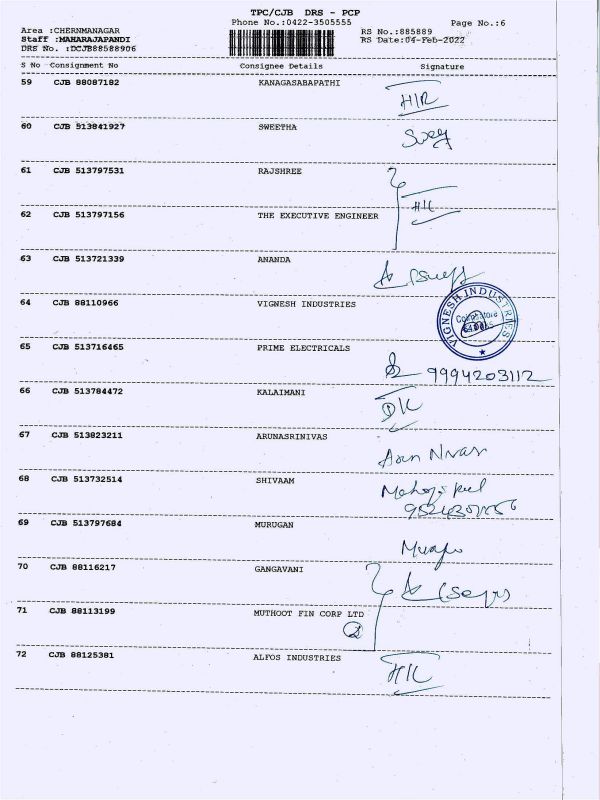 TPC/CJB DRS - PCP
Phone No.:0422-3505555 Page No.:6
Area :CHERNMANAGAR RS No.:885889
Staff :MAHARAJAPANDI RS Date:04-Feb-2022
DRS No. :DCJB88588906
S No Consignment No Consignee Details Signature
59 CJB 88087182 KANAGASABAPATHI
60 CJB 513841927 SWEETHA
61 CJB 513797531 RAJSHREE
62 CJB 513797156 THE EXECUTIVE ENGINEER
63 CJB 513721339 ANANDA
64 CJB 88110966 VIGNESH INDUSTRIES
VIGNESH INDUSTRIES
Coimbatore
65 CJB 513716465 PRIME ELECTRICALS
9994203112
66 CJB 513784472 KALAIMANI
67 CJB 513823211 ARUNASRINIVAS
68 CJB 513732514 SHIVAAM
69 CJB 513797684 MURUGAN
70 CJB 88116217 GANGAVANI
71 CJB 88113199 MUTHOOT FIN CORP LTD
72 CJB 88125381 ALFOS INDUSTRIES